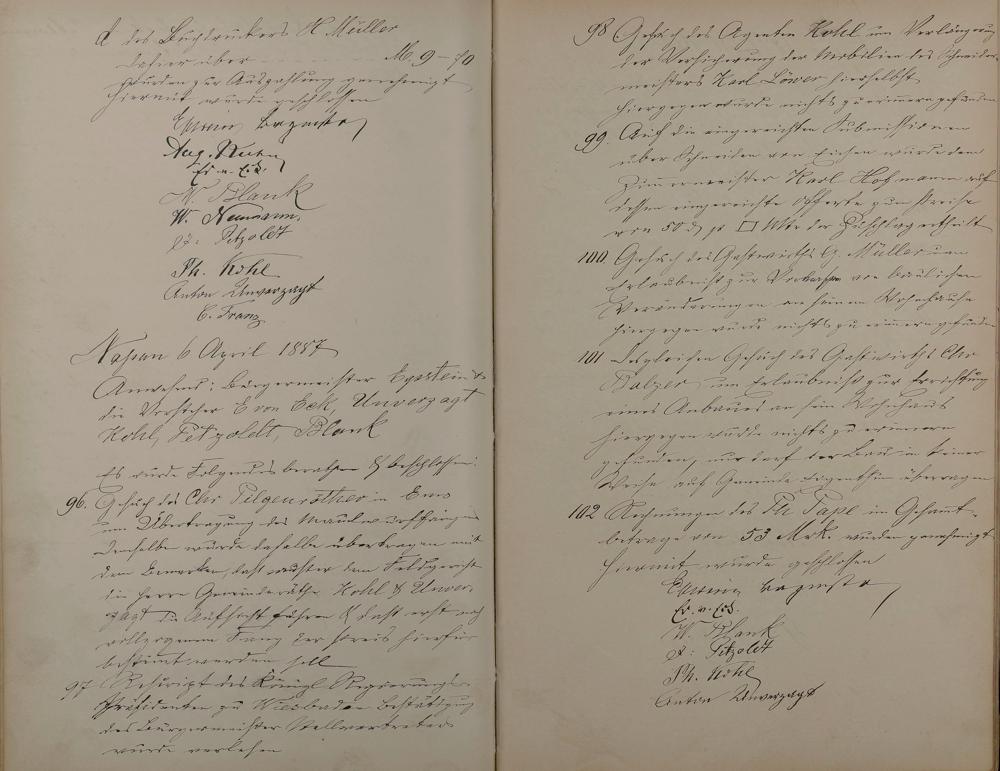 d des Buchdruckers H. Müller
datier über - - - - M. 9 - 70
wurden zur Auszahlung genehmigt
Hiermit wurde geschlossen
Bürgermstr
Aug. Kuhn
E. v. Eck.
W. Blank
W. Neumann.
Petzoldt
Ph. Kohl
Anton Unverzagt
C. Franz
Nassau 6 April 1887
Anwesend: Bürgermeister Epstein &
die Vorsteher E von Eck, Unverzagt
Kohl, Petzoldt, Blank
Es wurde Folgendes berathen & beschlossen:
96. Gesuch des Chr Pilgenröther in Ems
um Übertragung des Maulwurffanges
demselben wurde dasselbe übertragen mit
dem Bemerken, daß ausser dem Feldgericht
die Herrn Gemeinderäthe Kohl & Unver-
zagt die Aufsicht führen & daß erst nach
vollzogenem Fang der Preis hierfür
bestimmt werden soll
97 Rescript des Königl Regierungs-
Präsidenten zu Wiesbaden Bestätigung
des Bürgermeister Stellvertreters
wurde verlesen
98 Gesuch des Agenten Kohl um Verlängerung
der Versicherung der Mobilien des Schneider-
meisters Karl Löwer hierselbst
hiergegen wurde nichts zu erinnern gefunden
99. Auf die eingereichten Submissionen
über Schneiden von Eichen wurde dem
Zimmermeister Karl Hofmann auf
dessen eingereichte Offerte zum Preise
von 50 d pr □ Mtr der Zuschlag ertheilt
100. Gesuch des Gastwirths G. Müller um
Erlaubniß zur Vornahme von baulichen
Veränderungen an seinem Wohnhause
hiergegen wurde nichts zu erinnern gefunden
101 Desgleichen Gesuch des Gastwirths Chr
Balzer um Erlaubniß zur Errichtung
eines Anbaues an sein Wohnhaus
hiergegen wurde nichts zu erinnern
gefunden, nur darf der Bau in keiner
Weise auf Gemeinde Eigenthum überragen
102 Rechnungen des Th Pape im Gesammt-
betrage von 53 Mrk. wurden genehmigt
Hiermit wurde geschlossen
Bürgermstr
E. v. Eck.
W. Blank
Petzoldt
Ph. Kohl
Anton Unverzagt